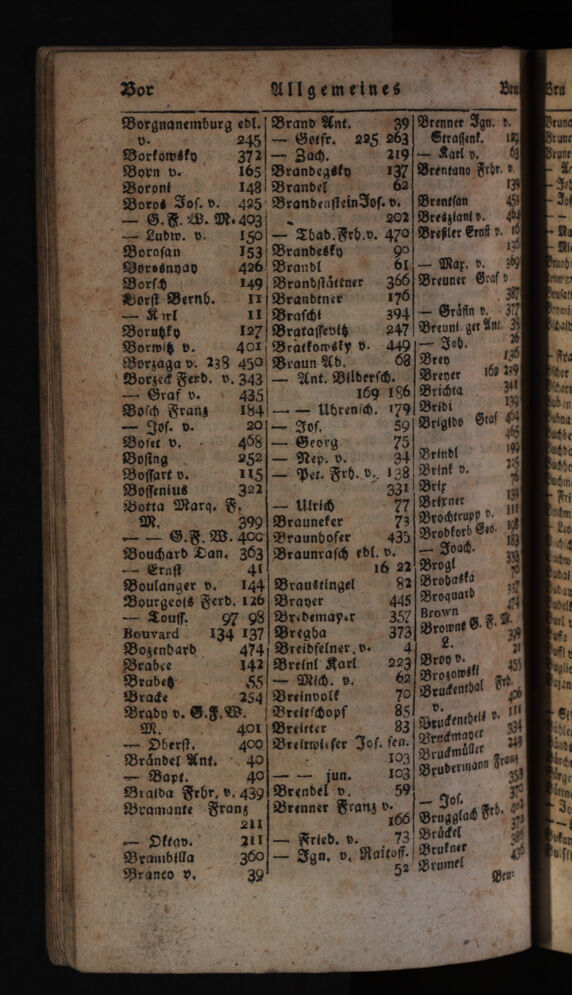 Bor
Allgemeines
Bru
Borgnanemburg edl.
v. 245
Borkowsky 372
Born v. 165
Boroni 148
Boros Jos. v. 425
— G. F. W. M. 403
— Ludw. v. 150
Borosan 153
Borosnyay 426
Borsch 149
Borst Bernh. 11
— Karl 11
Borutzky 127
Borwitz v. 401
Borzaga v. 238 450
Borzeck Ferd. v. 343
— Graf v. 435
Bosch Franz 184
— Jos. v. 20
Boset v. 468
Bosing 252
Bossart v. 115
Bossenius 322
Botta Marq. F.
M. 399
— — G. F. W. 400
Bouchard Dan. 363
— Ernst 41
Boulanger v. 144
Bourgeois Ferd. 126
— Touss. 97 98
Bouvard 134 137
Bozenhard 474
Brabee 142
Brabetz 55
Bracke 254
Brady v. G. F. W.
M. 401
— Oberst. 400
Brändel Ant. 40
— Bapt. 40
Braida Frhr. v. 439
Bramante Franz
211
— Oktav. 211
Brambilla 360
Branco v. 39
Brand Ant. 39
— Gotfr. 225 263
— Zach. 219
Brandegsky 137
Brandel 62
Brandenstein Jos. v.
202
— Thad. Frh. v. 470
Brandesky 90
Brandl 61
Brandstättner 366
Brandtner 176
Braschi 394
Bratassevitz 247
Bratkowsky v. 449
Braun Ad. 68
— Ant. Bilbersch.
169 186
— — Uhrensch. 179
— Jos. 59
— Georg 75
— Nep. v. 34
— Pet. Frh. v. 138
331
— Ulrich 77
Brauneker 73
Braunhofer 435
Braunrasch edl. v.
16 22
Braustingel 82
Brayer 445
Bredemayer 357
Bregha 373
Breidfelner v. 4
Breinl Karl 223
— Mich. v. 62
Breinvolk 70
Breitschopf 85
Breitter 83
Breitwieser Jos. sen.
103
— — jun. 103
Brendel v. 59
Brenner Franz v.
166
— Fried. v. 73
— Ign. v. Raitoff.
52
Brenner Ign. v.
Strassenk. 129
— Karl v. 63
Brentano Frhr. v.
139
Brentsan 453
Bresziani v. 464
Breßler Ernst v. 16
136
— Max. v. 369
Breuner Graf v
387
— Gräfin v. 377
Breuninger Ant. 39
— Joh. 26
Brey 136
Breyer 162 219
Brichta 341
Bridi 139
Brigido Graf 464
465
Brindl 199
Brink v.
Brix 76
Brixner
Brochtrupp v. 111
Brodkorb Geo. 198
— Joach. 183
Brogl 333
Brohaska 70
Broquard
Brown 474
Browne G. F. M.
L. 398
Broy v. 21
Brozowski 455
Bruckenthal Frh.
v. 406
Bruckenthels v. 111
Bruckmayer 334
Bruckmüller 249
Brudermann Franz
358
— Jos. 370
Brugglach Frh. 402
Brückel 372
Brukner 386
Brumel 436
Bru=